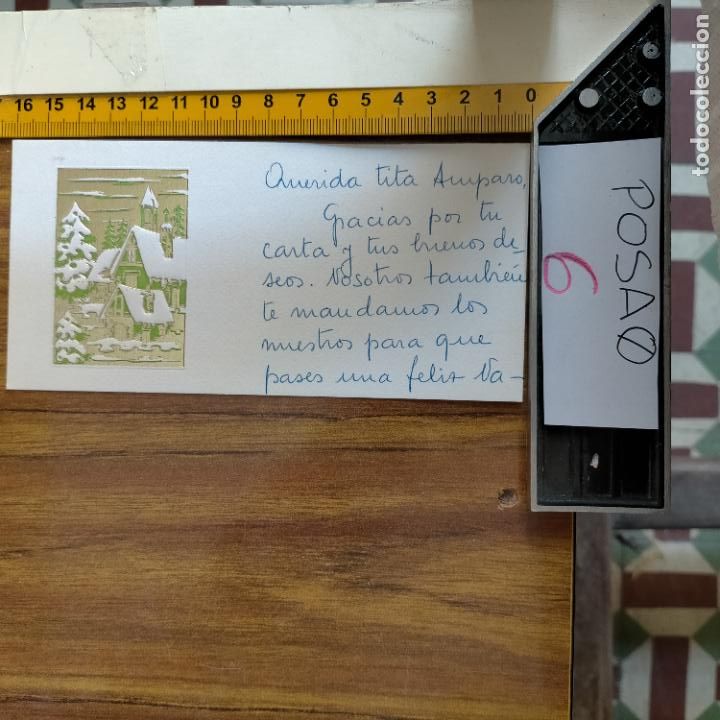 16 15 14 13 12 11 10 9 8 7 6 5 4 3 2 1 0
Querida tita Amparo,
Gracias por tu
carta y tus buenos de-
seos. Nosotros también
te mandamos los
nuestros para que
pases una feliz Na-
POSAØ
6
todocoleccion